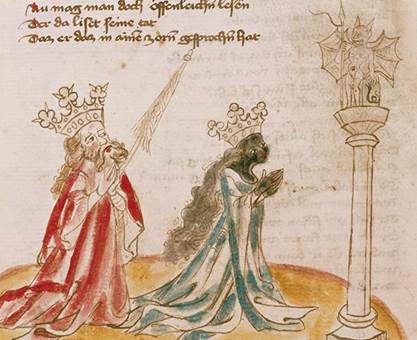 Nu mag man doch öffenleichn lesen
Der da liset seine tat
Daz er daz in ainem zorn gesprochn hat